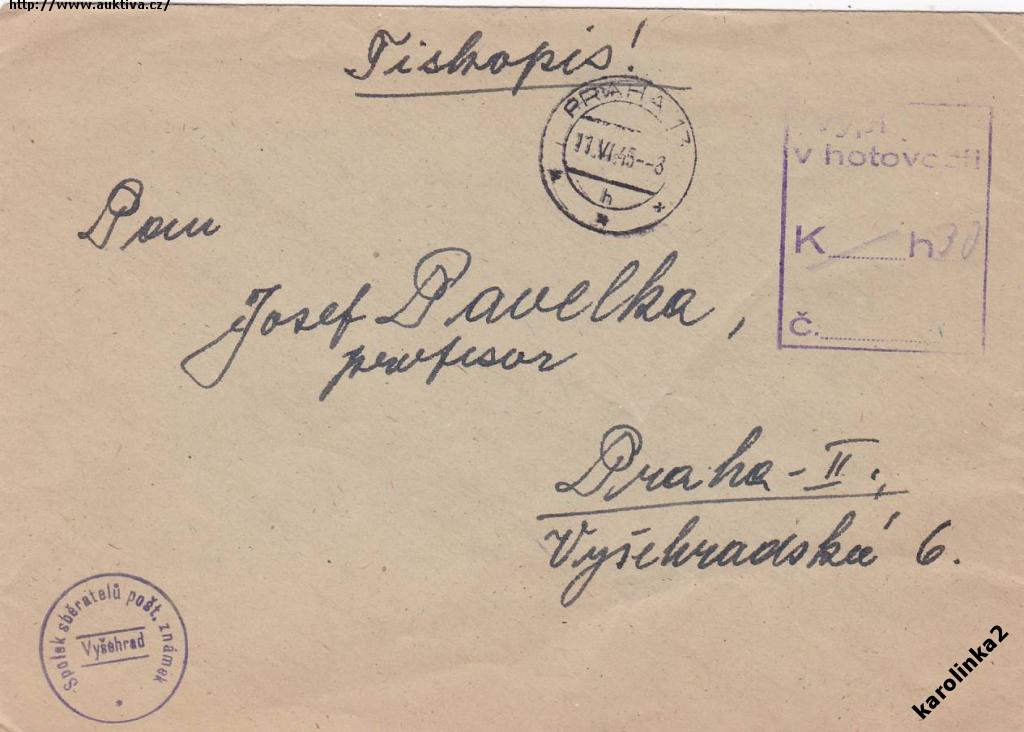 http://www.auktiva.cz/
Tiskopis!
PRAHA
11.VI.45--8
h
v hotovosti
K h30
č.
Pan
Josef Pavelka,
profesor
Praha-II.,
Vyšehradská 6.
Spolek sběratelů pošt. známek
Vyšehrad
karolinka2